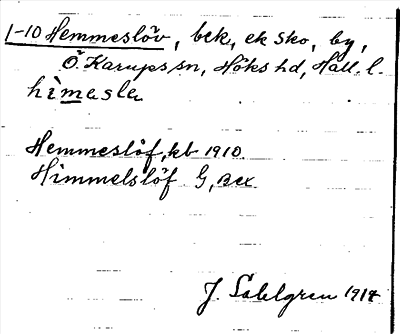 1-10 Hemmeslöv, bck, ek sko, by,
Ö. Karups sn, Höks hd, Hall. l.
himəslə
Hemmeslöf, kb 1910
Himmelslöf G,
J. Sahlgren 1917